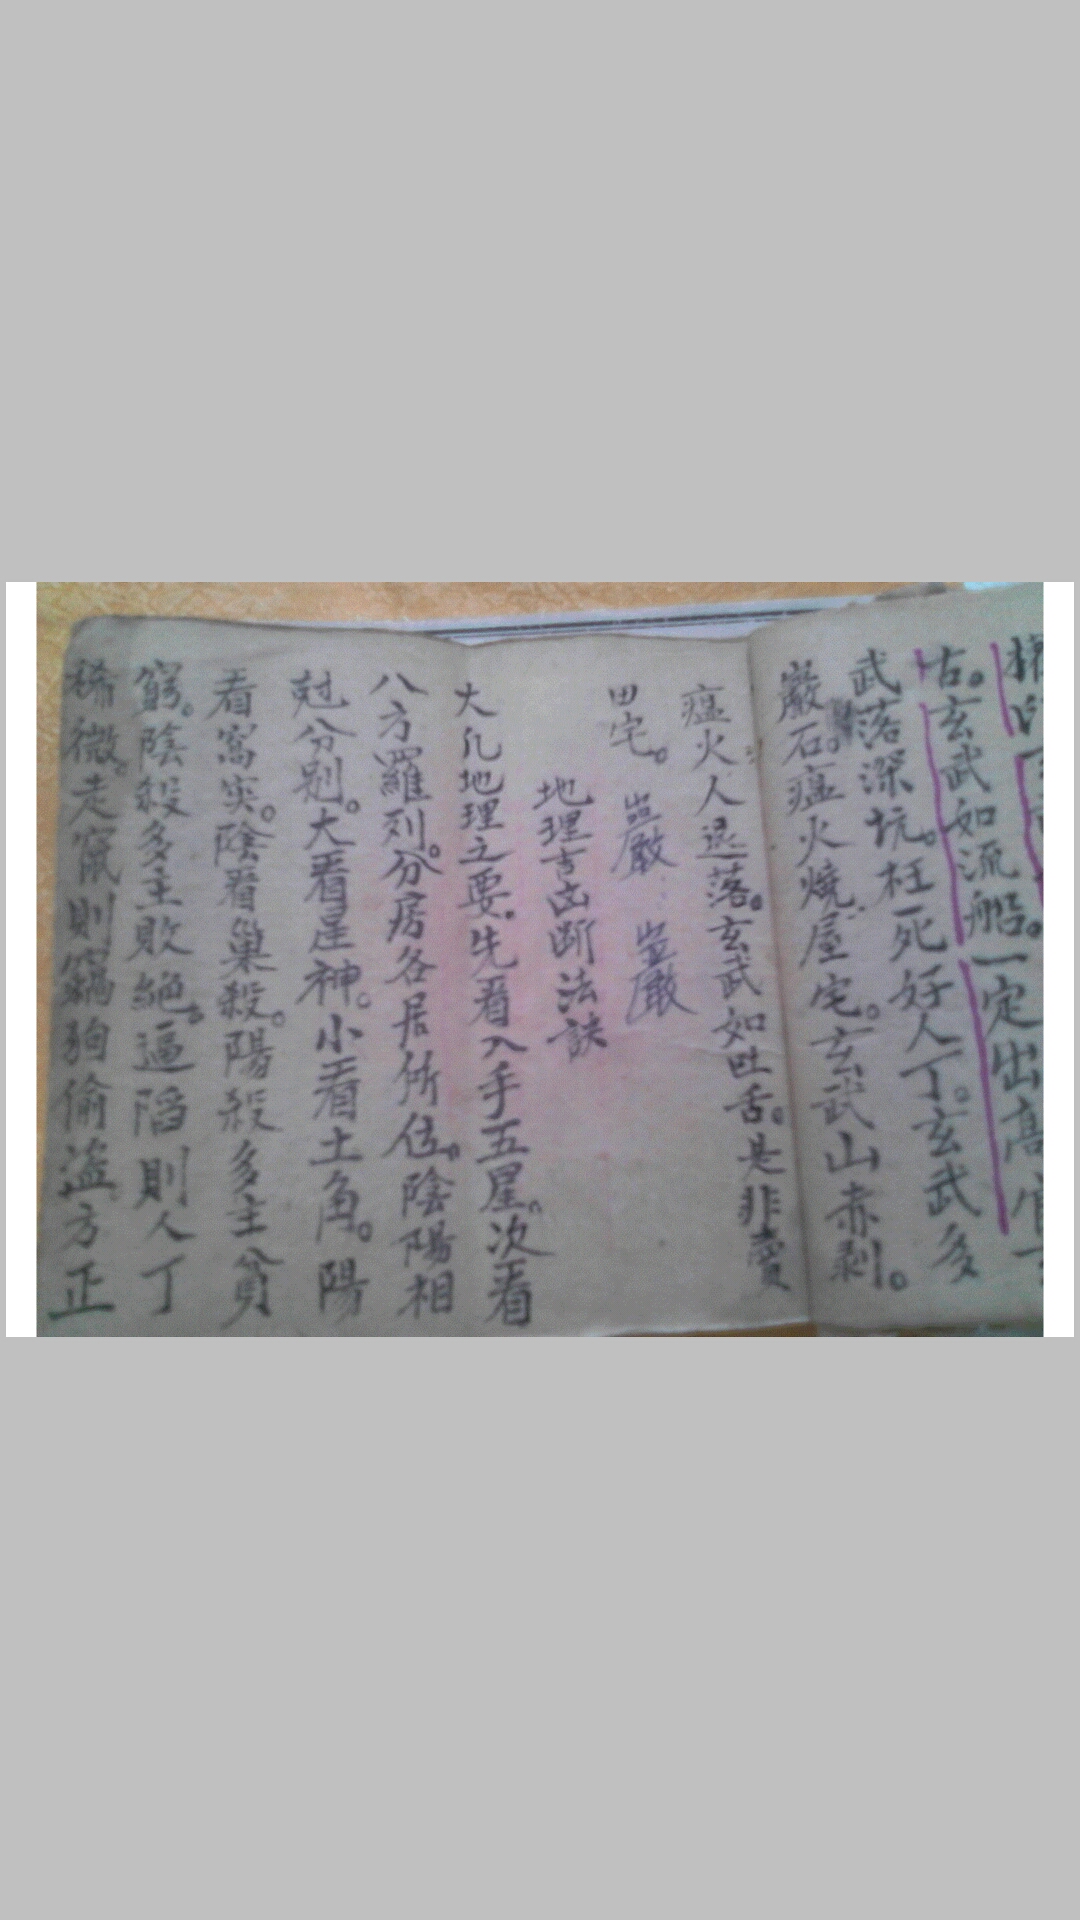 一定出高官
古。玄武如流船。
武落深坑。枉死好人丁。玄武多
巖石。瘟火燒屋宅。玄武山赤剥。
瘟火人退落。玄武如吐舌。是非賣
田宅。
巖 巖
地理吉凶断法訣
大凡地理之要。先看入手五星。次看
八方羅列。分房各居所位。陰陽相
尅分别。大看星神。小看土角。陽
看窝突。陰看巢殺。陽殺多主貧
窮。陰殺多主敗絶。逼陷則人丁
稀微。走竄則竊狗偷盗。方正